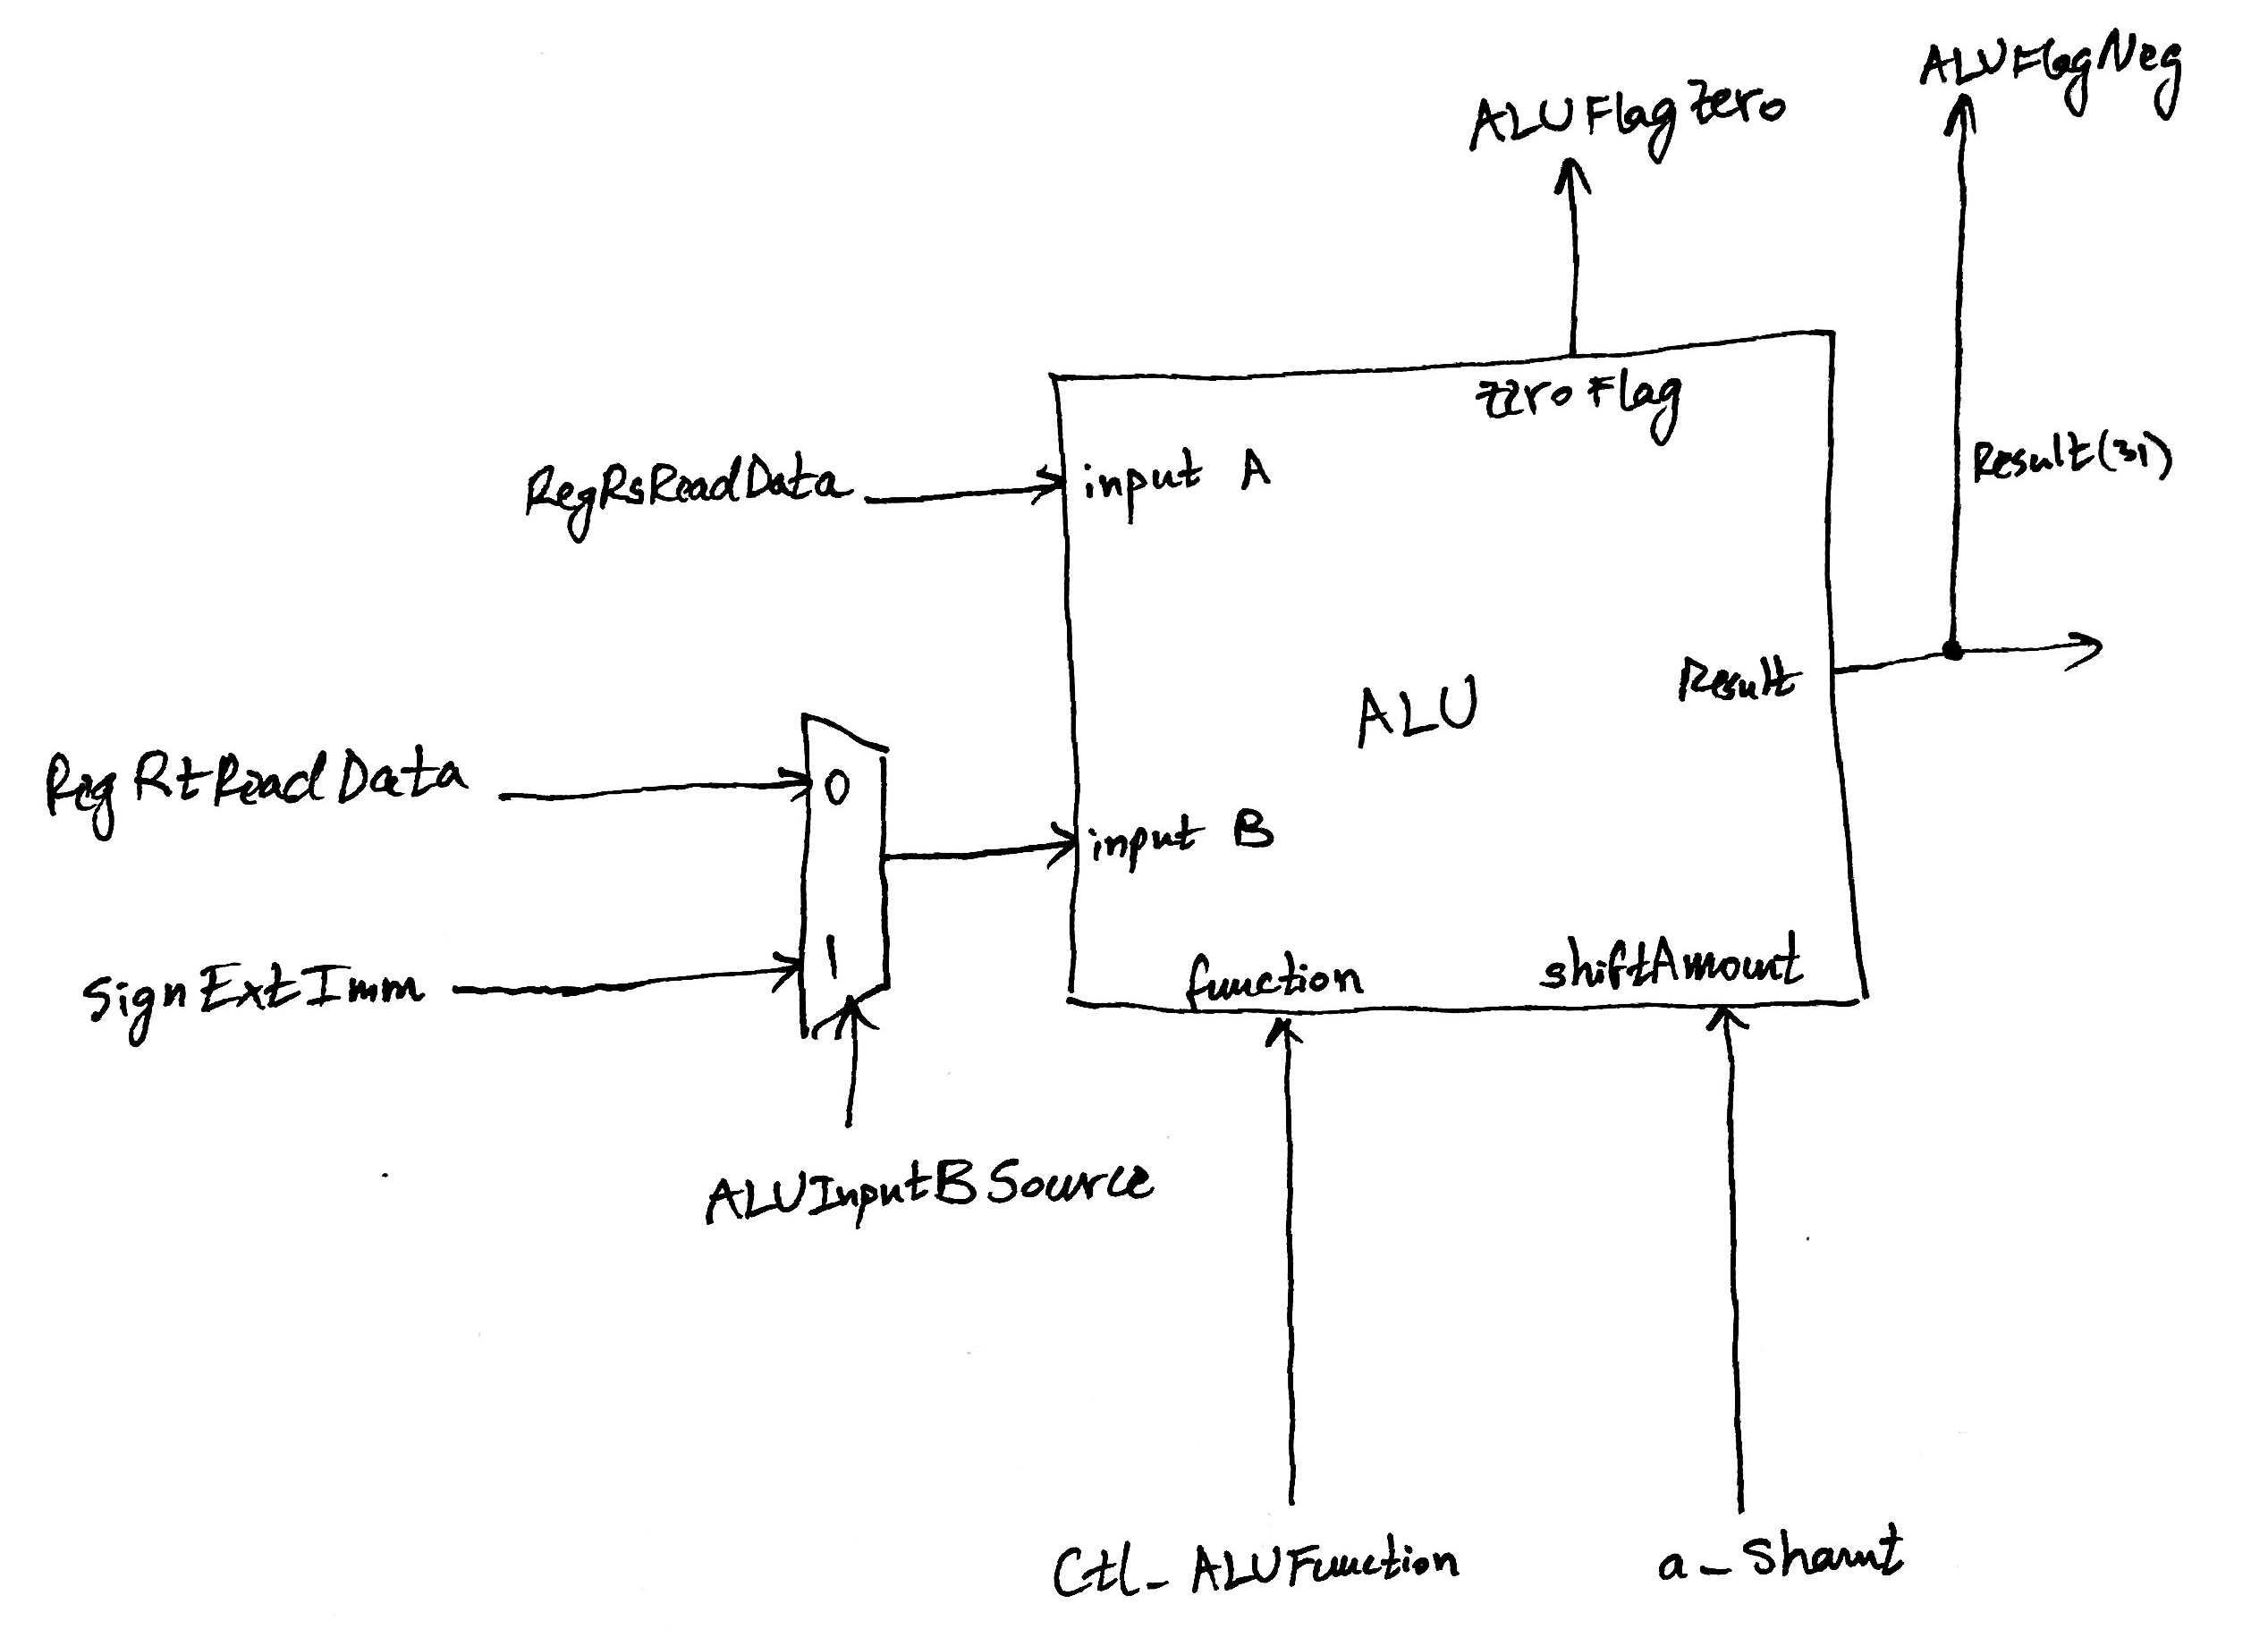 ALUFlagNeg
ALUFlagZero
zeroFlag
Result(31)
RegRsReadData
input A
Result
ALU
RegRtReadData
0
input B
SignExtImm
1
function
shiftAmount
ALUInputBSource
Ctl_ALUFunction
a_Shamt